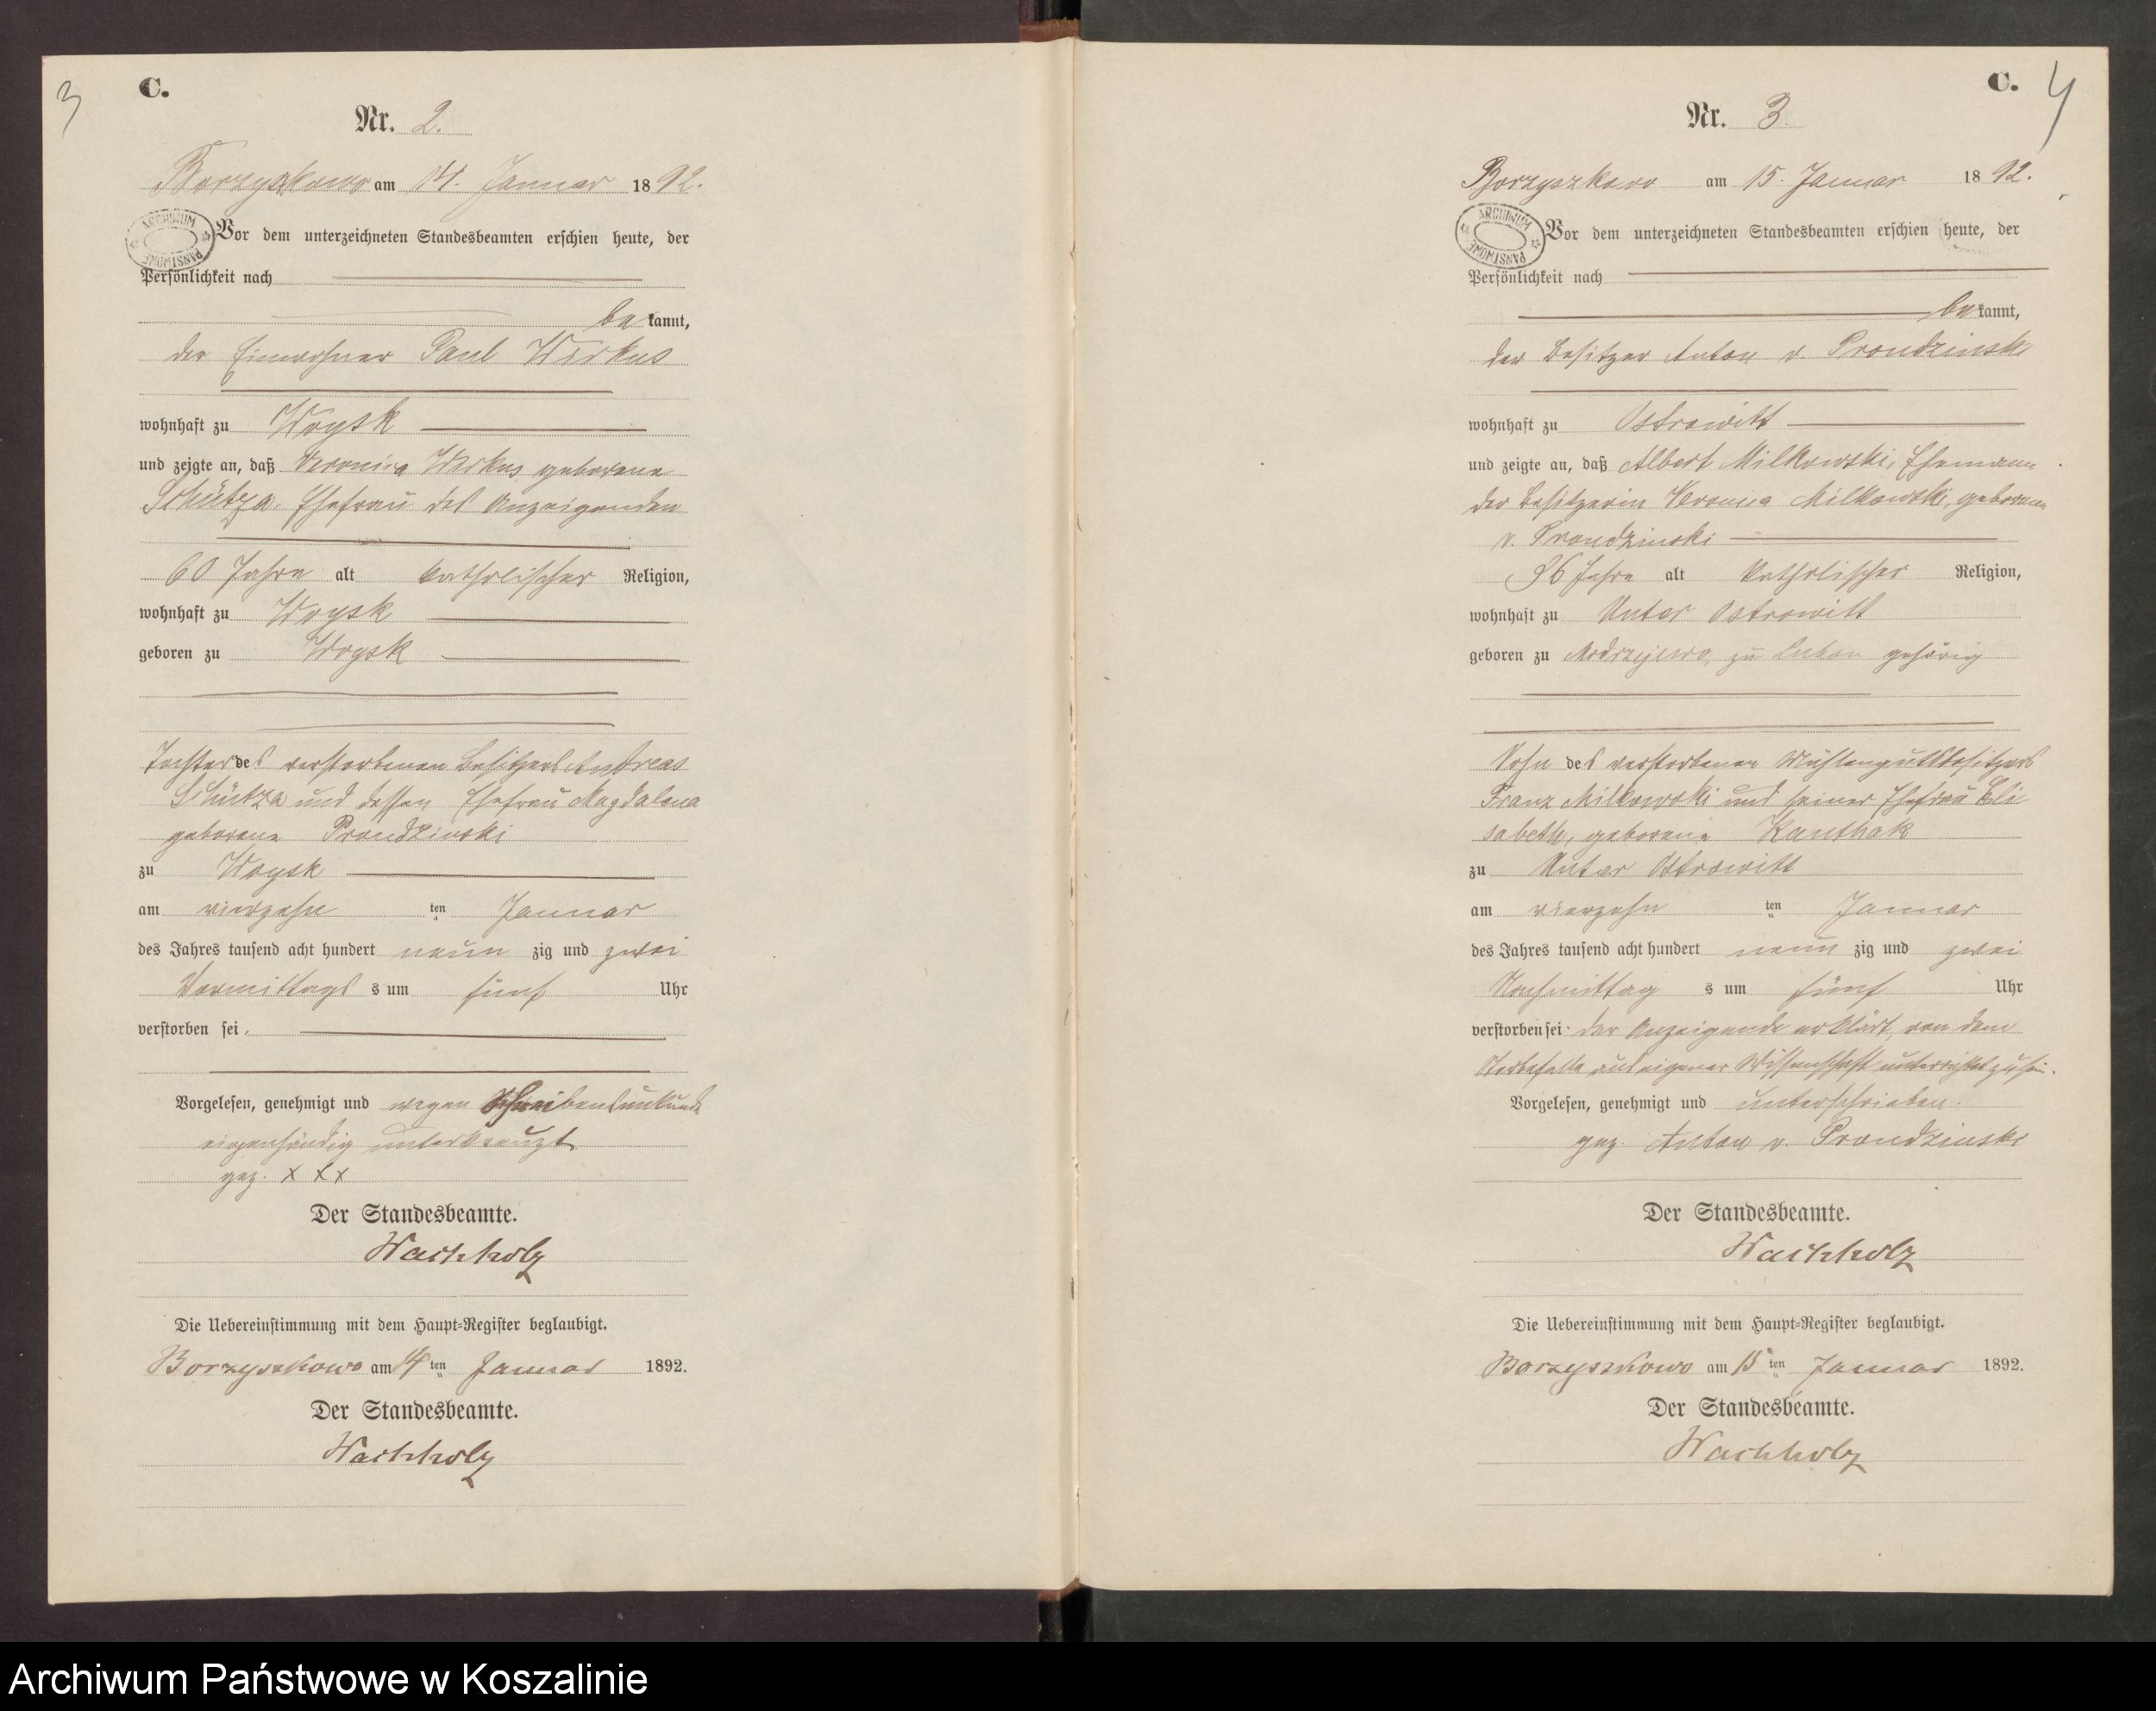 3
C.
Nr. 2.
Borzyszkowo am 14. Januar 1892.
ARCHIWUM PAŃSTWOWE
Vor dem unterzeichneten Standesbeamten erschien heute, der
Persönlichkeit nach
bekannt,
der Einwohner Paul Wirkus
wohnhaft zu Woysk
und zeigte an, daß Veronica Wirkus geborene
Schütza, Ehefrau des Anzeigenden
60 Jahre alt katholischer Religion,
wohnhaft zu Woysk
geboren zu Woysk
Tochter des verstorbenen Besitzers Andreas
Schütza und dessen Ehefrau Magdalena
geborene Prondzinski
zu Woysk
am vierzehn ten Januar
des Jahres tausend acht hundert neun zig und zwei
Vormittags s um fünf Uhr
verstorben sei.
Vorgelesen, genehmigt und wegen Schreibensunkunde
eigenhändig unterkreuzt
gez. x x x
Der Standesbeamte.
Wachholz
Die Uebereinstimmung mit dem Haupt-Register beglaubigt.
Borzyszkowo am 14 ten Januar 1892.
Der Standesbeamte.
Wachholz
C. 4
Nr. 3.
Borzyszkowo am 15. Januar 1892.
ARCHIWUM PAŃSTWOWE
Vor dem unterzeichneten Standesbeamten erschien heute, der
Persönlichkeit nach
bekannt,
der Besitzer Anton v. Prondzinski
wohnhaft zu Ostrowitt
und zeigte an, daß Albert Milkowski, Ehemann
der Besitzerin Veronica Milkowski, geborene
v. Prondzinski
86 Jahre alt katholischer Religion,
wohnhaft zu Unter Ostrowitt
geboren zu zu gehörig
Sohn des verstorbenen Mühlengutsbesitzers
Franz Milkowski und seiner Ehefrau Eli
sabeth, geborene Kauthak
zu Unter Ostrowitt
am vierzehn ten Januar
des Jahres tausend acht hundert neun zig und zwei
Nachmittag s um fünf Uhr
verstorben sei. der Anzeigende erklärt, von dem
Sterbefalle aus eigener Wissenschaft unterrichtet zu sein.
Vorgelesen, genehmigt und unterschrieben.
gez. Anton v. Prondzinski
Der Standesbeamte.
Wachholz
Die Uebereinstimmung mit dem Haupt-Register beglaubigt.
Borzyszkowo am 15 ten Januar 1892.
Der Standesbeamte.
Wachholz
Archiwum Państwowe w Koszalinie